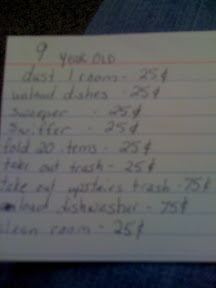 9 YEAR OLD
dust 1 room - 25¢
unload dishes - 25¢
Sweeper - 25¢
Swiffer - 25¢
fold 20 items - 25¢
take out trash - 25¢
take out upstairs trash - 75¢
load dishwasher - 75¢
clean room - 25¢